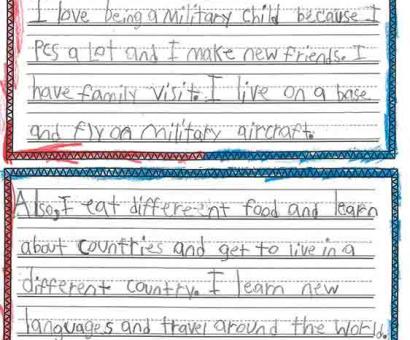 I love being a military child because I
PCS a lot and I make new friends. I
have family visit. I live on a base
and fly on military aircraft.
Also, I eat differeent food and learn
about countries and get to live in a
different country. I learn new
languages and travel around the world.